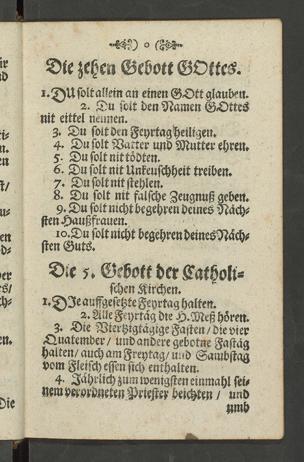 o
Die zehen Gebott GOttes.
1. DU solt allein an einen GOtt glauben.
2. Du solt den Namen GOttes
nit eittel nennen.
3. Du solt den Feyrtag heiligen.
4. Du solt Vatter und Mutter ehren.
5. Du solt nit tödten.
6. Du solt nit Unkeuschheit treiben.
7. Du solt nit stehlen.
8. Du solt nit falsche Zeugnuß geben.
9. Du solt nicht begehren deines Näch-
sten Haußfrauen.
10. Du solt nicht begehren deines Näch-
sten Guts.
Die 5. Gebott der Catholi-
schen Kirchen.
1. DJe auffgesetzte Feyrtag halten.
2. Alle Feyrtäg die H. Meß hören.
3. Die Viertzigtägige Fasten / die vier
Quatember / und andere gebotne Fastäg
halten / auch am Freytag / und Sambstag
vom Fleisch essen sich enthalten.
4. Jährlich zum wenigsten einmahl sei-
nem verordneten Priester beichten / und
umb
Die